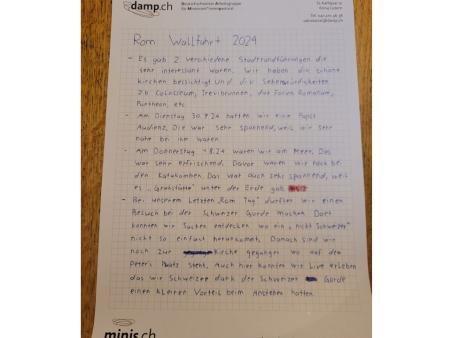 damp.ch
Rom Wallfahrt 2024
- Es gab 2 verschiedene Stadtrundführungen die
sehr interessant waren. Wir haben die schöne
kirchen besichtigt und die Sehenswürdigkeiten
z.b. Colosseum, Trevibrunnen, das Forum Romanum,
Pantheon, etc.
- Am Dienstag 30.7.24 hatten wir eine Papst
Audienz. Die war sehr spannend, weil wir sehr
nahe bei ihm waren.
- Am Donnerstag 1.8.24 waren wir am Meer. Das
war sehr erfrischend. Davor waren wir noch bei
den Katakomben. Das war auch sehr spannend, weil
es "Grabstätte" unter der Erde gab.
- Bei unserem Letzten "Rom Tag" durften wir einen
Besuch bei der Schweizer Garde machen. Dort
konnten wir Sachen entdecken wo ein "nicht Schweizer"
nicht so einfach herankommt. Danach sind wir
noch zur Kirche gegangen wo auf dem
Peters Platz steht. Auch hier konnten wir Live erleben
das wir Schweizer dank der Schweizer Garde
einen kleinen Vorteil beim Anstehen hatten.
minis.ch